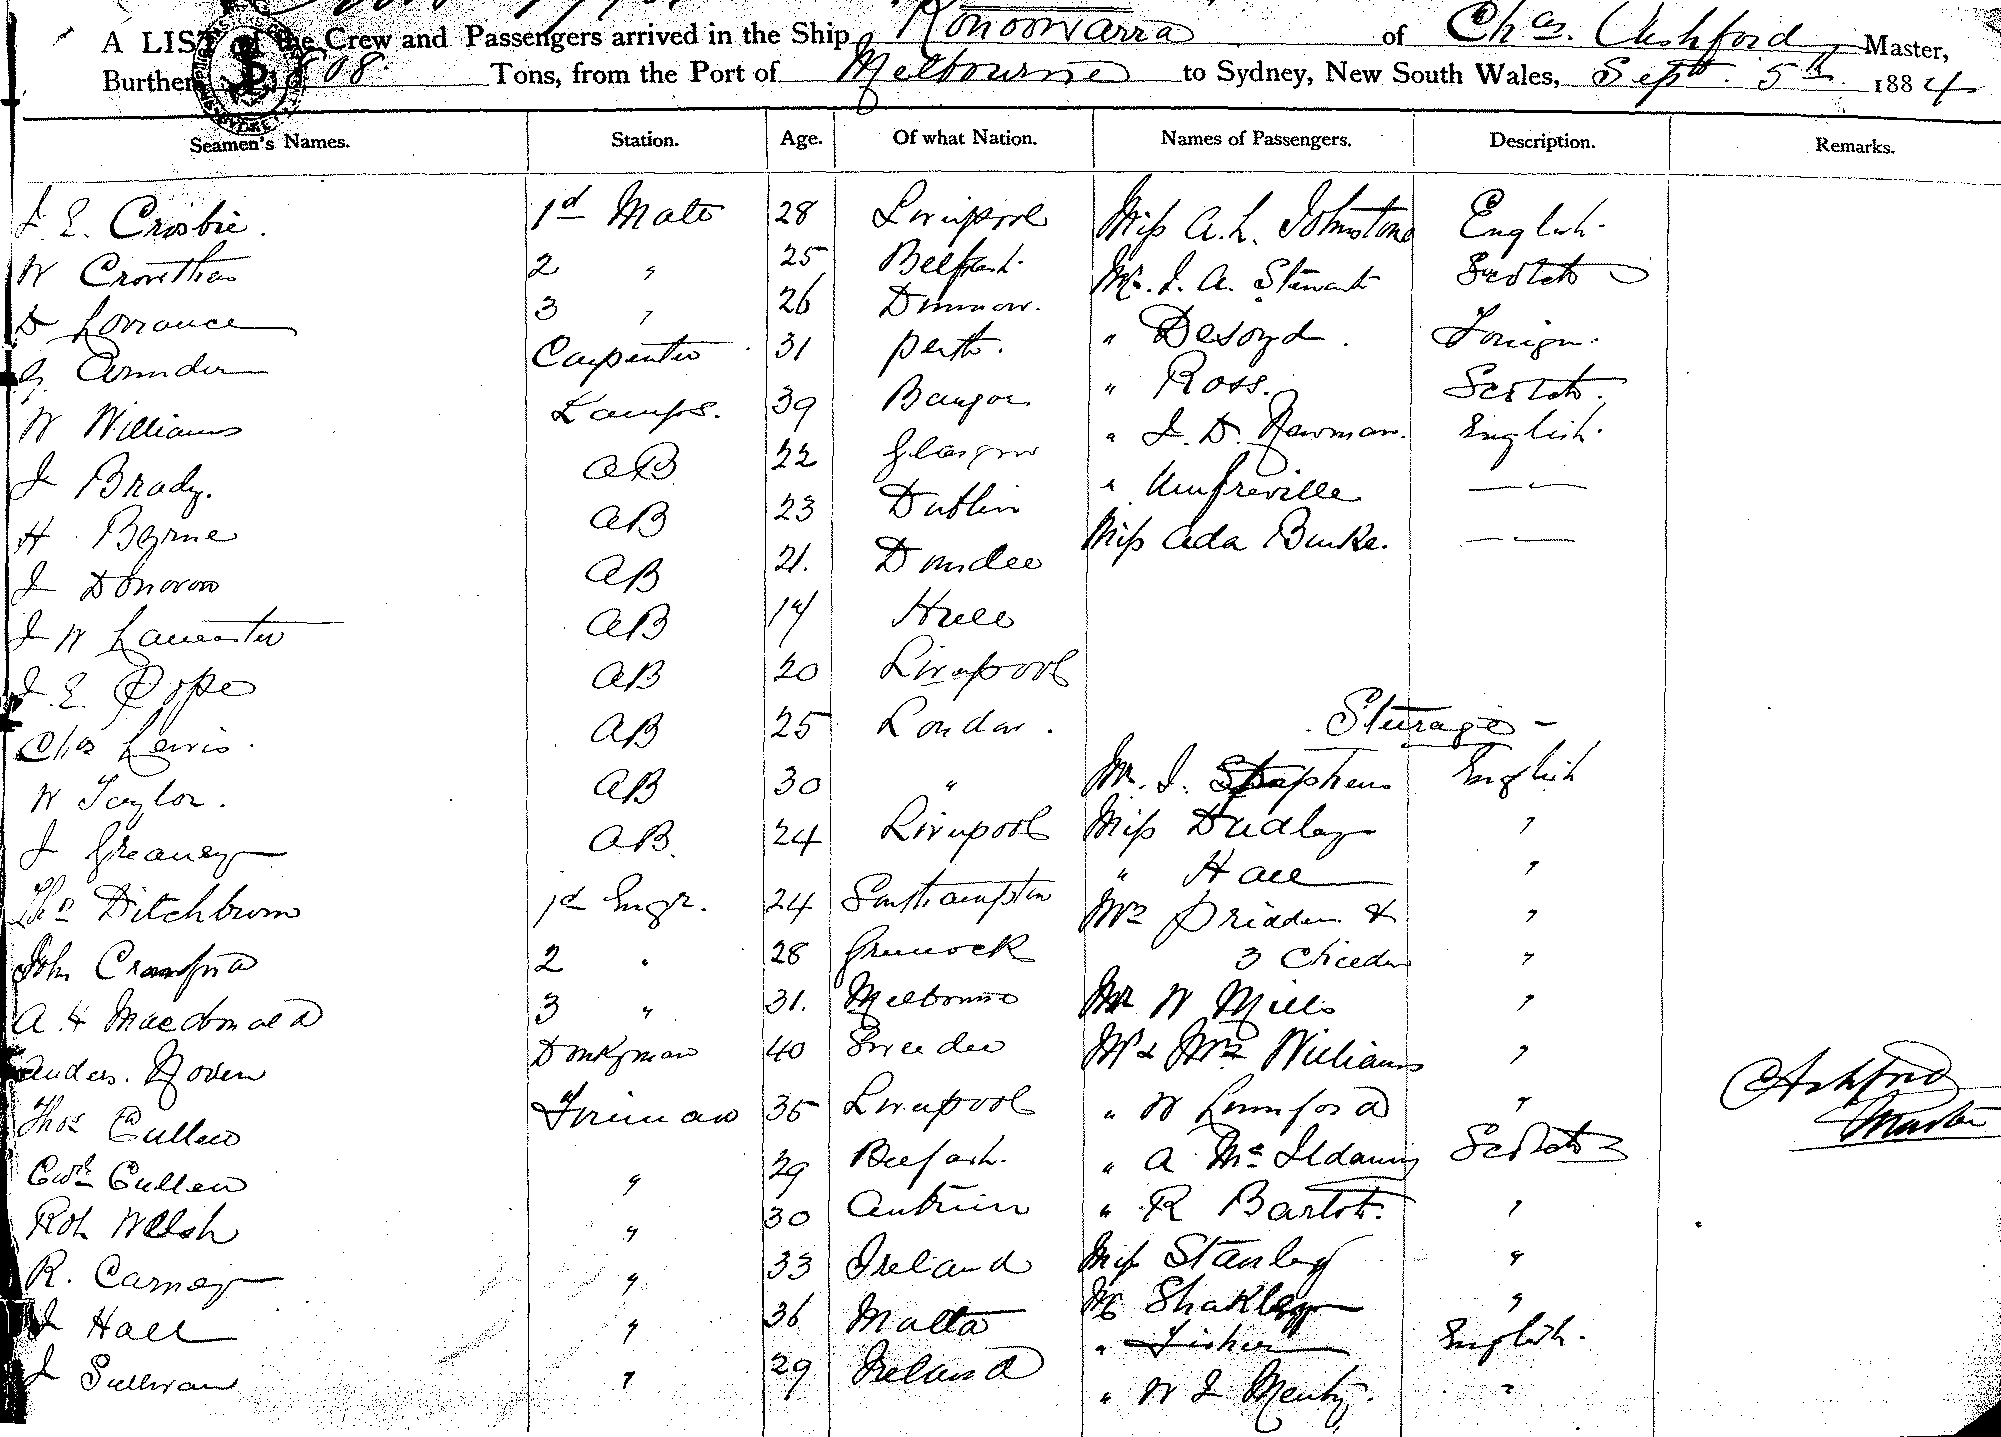 A LIST of the Crew and Passengers arrived in the Ship Konoowarra of Chas. Ashford, Master,
Burthen 08 Tons, from the Port of Melbourne to Sydney, New South Wales, Sept. 5th 1884
Seamen's Names. Station. Age. Of what Nation. Names of Passengers. Description. Remarks.
J. E. Crosbie. 1st Mate 28 Liverpool Miss A. L. Johnstone English.
W Crowther 2 " 25 Belfast. Mr. J. A. Stewart Scotch
D Lorrance 3 " 26 " Desoyd. Foreign.
G 31 Perth. " Ross. Scotch.
Carpenter
W Williams Lamps. 39 Bangor " J. D. Newman. English.
J Brady. AB 22 Glasgow " Umfreville — " —
H Byrne AB 23 Dublin Miss Ada Burke. — " —
J Donovan AB 21. Dundee
J W Lancaster AB 19 Hull
J. E. Pope AB 20 Liverpool
Chas Lewis. AB 25 London. Steerage -
W Taylor. AB 30 " Mr. J. Stephens English
J Greaney AB. 24 Liverpool Miss Dudley "
" Hall "
Thos Ditchburn 1st Engr. 24 Southampton Mrs Pridden & "
John Crawford 2 " 28 Greenock 3 Children "
A H Macdonald 3 " 31. Melbourne Mr W Mills "
Anders. Noven Donkyman 40 Sweden Mr & Mrs Williams "
Thos Cullen Fireman 35 Liverpool " W Lunnford "
CAshford
Master
Edwd Cullen " 29 Belfast. " A Mc Scotch
Robt Welsh " 30 Antrim " R Bartot. "
R. Carney " 33 Ireland Miss Stanley "
J Hall " 36 Malta Mr Shakley "
" Fisher English.
J Sullivan " 29 Ireland " W J "